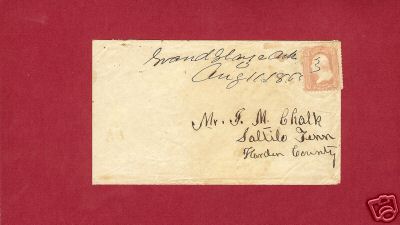 Grand Glaize Ark
Aug 11 1866
3
Mr. J. M. Chalk
Saltilo Tenn
Hardin County